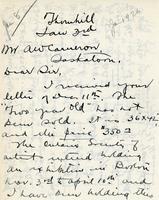 Thornhill
Jan 3rd
Mr AW Cameron,
Saskatoon.
Dear Sir,
I received your
letter of The
"Two year Old" has not
been sold. It is 36x42
and the price $350
The Society of
artist intend holding
an exhibition in
Nov. 3rd to April 10th and
I have been holding this